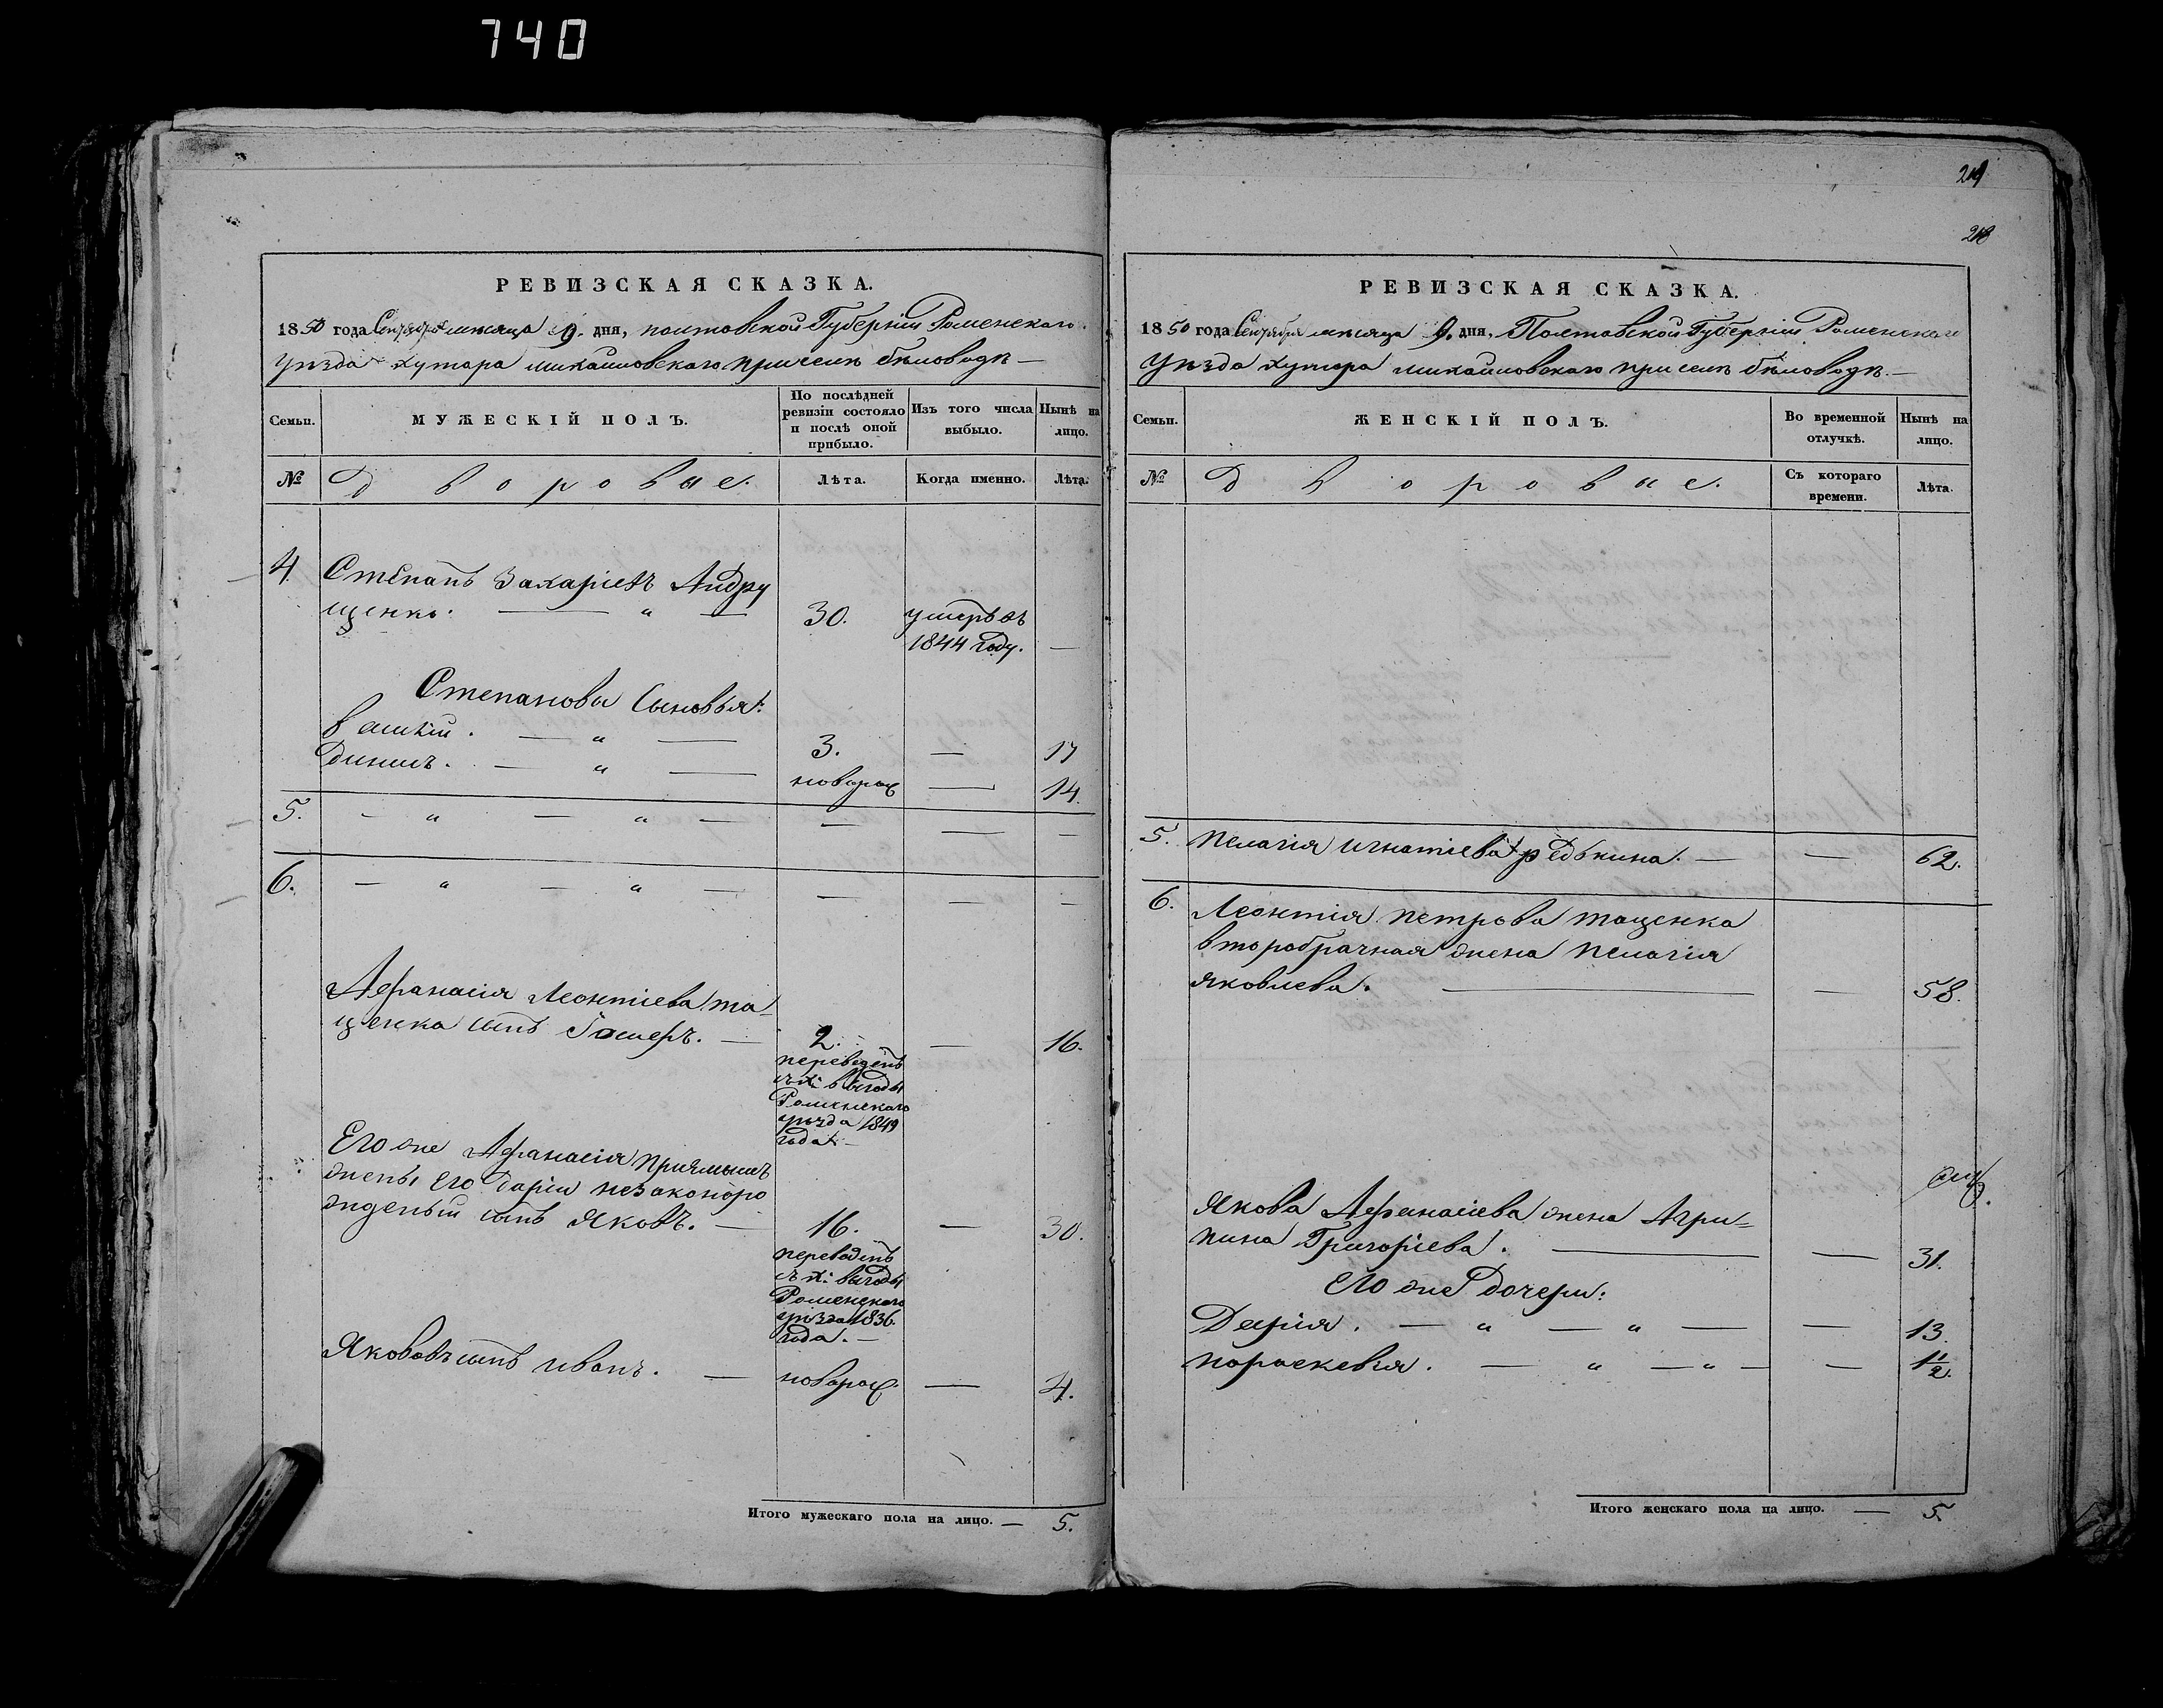 740
219
218
РЕВИЗСКАЯ СКАЗКА.
1850 года Сентября месяца 9. дня, полтавской Губерніи Роменскаго
уѣзда хутора михайловскаго при селѣ бѣловодѣ —
Семьи.
МУЖЕСКІЙ ПОЛЪ.
По послѣдней ревизіи состояло и послѣ оной прибыло.
Изъ того числа выбыло.
Нынѣ на лицо.
№
Дворовые.
Лѣта.
Когда именно.
Лѣта.
4. Степанъ Захаріевъ Андру
щенко. — " — 30. умеръ въ
1844 году. —
Степановы Сыновья:
— " — 3. — 17
— " — новорож — 14.
5. — " — " — — — —
6. — " — " — — — —
Афанасія Леонтіева та-
щенка сынъ — 2. — 16.
переведенъ
съ х: выгоды
Роменскаго
уѣзда 1849
года. —
Его же Афанасія пріямышъ
жены его Даріи незаконоро
жденый сынъ Яковъ. — 16. — 30.
переведенъ
съ х: выгоды
Роменскаго
уѣзда 1836.
года. —
Якововъ сынъ иванъ. — новорож. — 4.
Итого мужескаго пола на лицо. — 5.
РЕВИЗСКАЯ СКАЗКА.
1850 года Сентября месяца 9. дня, Полтавской Губерніи Роменскаго
Уѣзда хутора михайловскаго при селѣ бѣловодѣ. —
Семьи.
ЖЕНСКІЙ ПОЛЪ.
Во временной отлучкѣ.
Нынѣ на лицо.
№
Дворовые.
Съ котораго времени.
Лѣта.
5. пелагія игнатіева редькина. — — 62.
6. Леонтія петрова тащенка
второбрачная жена пелагія
яковлева. — — 58.
Якова Афанасіева жена Агри-
пина Григоріева. — — 31.
Его же дочери:
Дарія. — " — " — — 13.
параскевія. — " — " — — 1 1/2.
Итого женскаго пола на лицо. — 5.